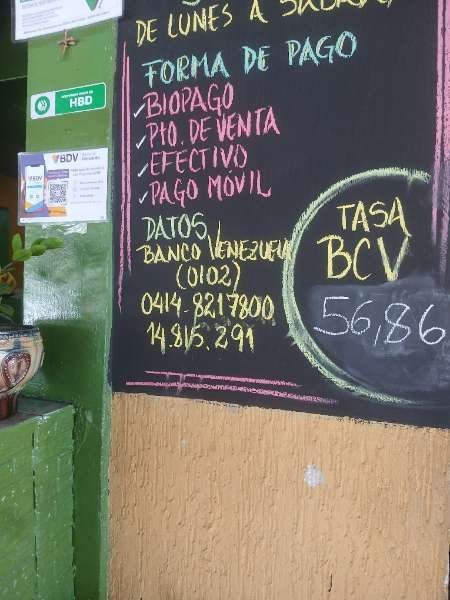 DE LUNES A SÁBADO
FORMA DE PAGO
✓BIOPAGO
✓PTO. DE VENTA
✓EFECTIVO
✓PAGO MÓVIL
DATOS
BANCO VENEZUELA
(0102)
0414.8217800
14.815.291
TASA
BCV
56,86
HBD
BDV
BDV